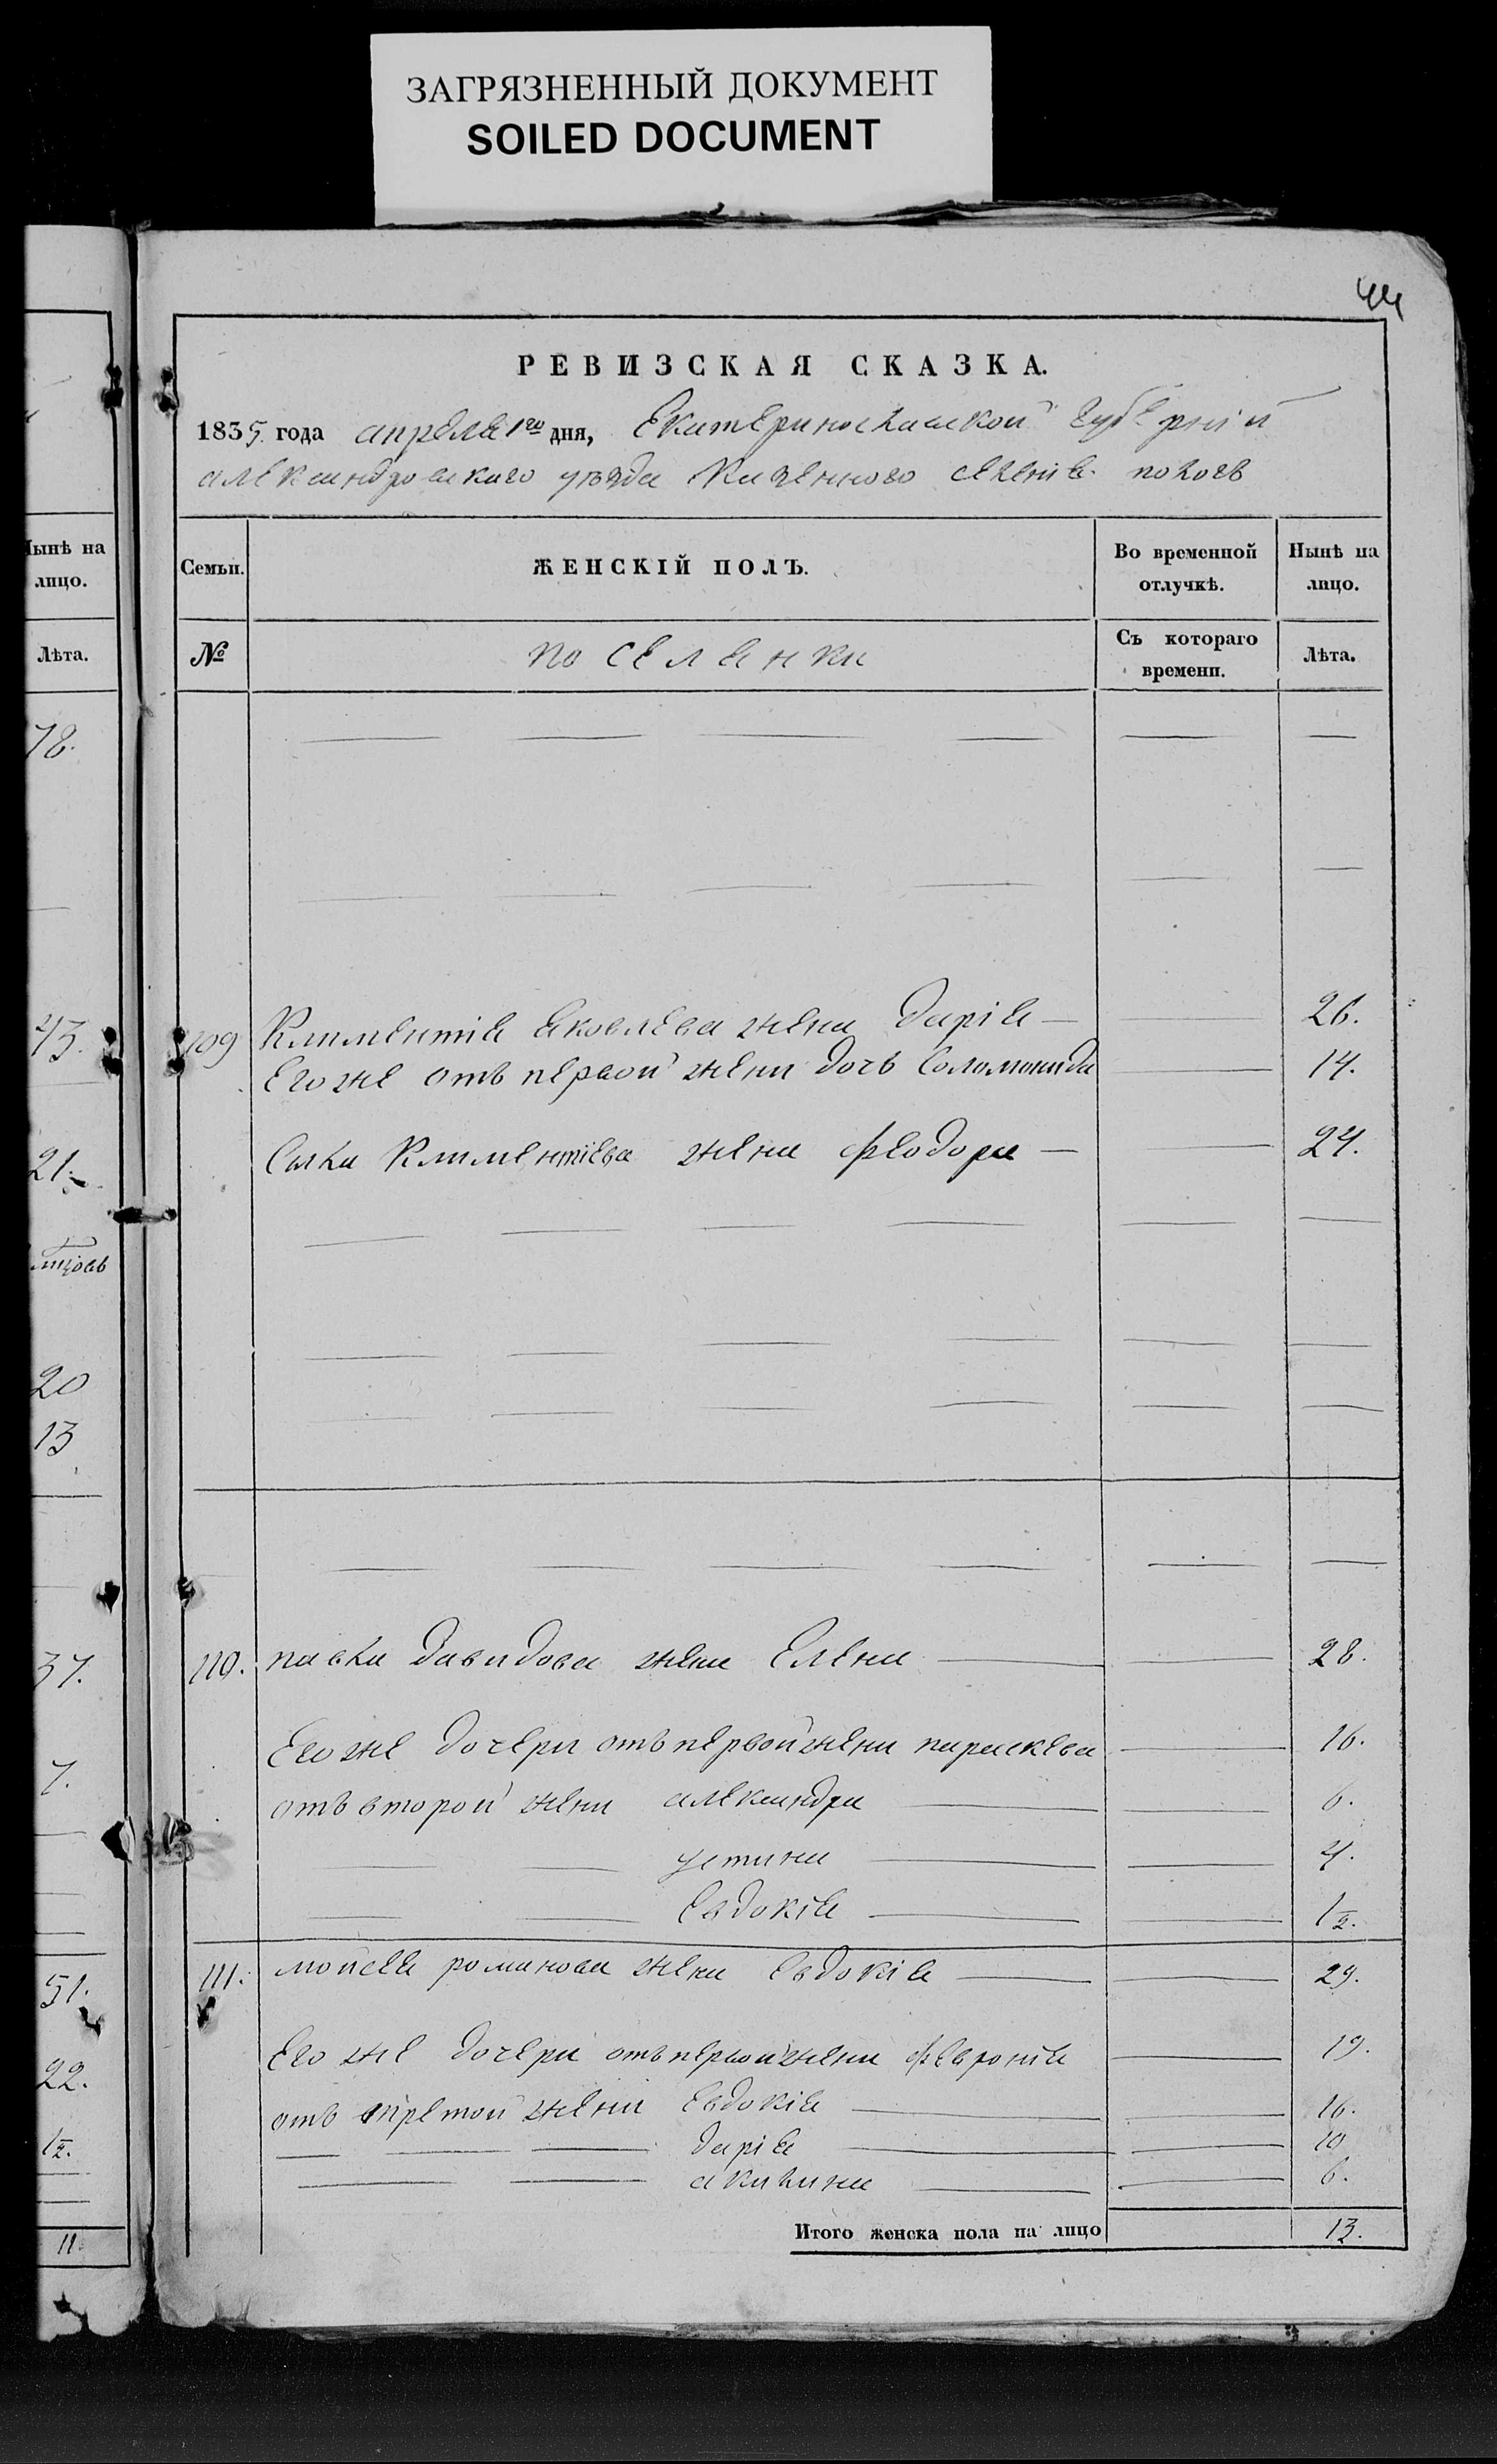 ЗАГРЯЗНЕННЫЙ ДОКУМЕНТ
SOILED DOCUMENT
44
РЕВИЗСКАЯ СКАЗКА.
1835 года апреля 1го дня, Екатеринославской Губернiи
александровскаго уѣзда Казенного селенiя покогь
Семьи.
ЖЕНСКІЙ ПОЛЪ.
Во временной отлучкѣ.
Нынѣ на лицо.
№
поселянки
Съ котораго времени.
Лѣта.
109 Климентiя яковлева жена Дарiя 26.
Его же отъ первой жени дочь Соломонида 14.
Савки Климентiева жена феодора 24.
110. павла давидова жена Елена 28.
Его же дочери отъ первой жени параскева 16.
отъ второй жени александра 6.
устина 4.
Евдокiя 1/2.
111. моисея романова жена Евдокiя 29.
Его же дочери отъ первой жени феврония 19.
отъ третой жени Евдокiя 16.
дарiя 10
акилина 6.
Итого женска пола на лицо 13.
Нынѣ на
лицо.
Лѣта.
78.
43.
21.
20
13
37.
7.
51.
22.
1/2.
11